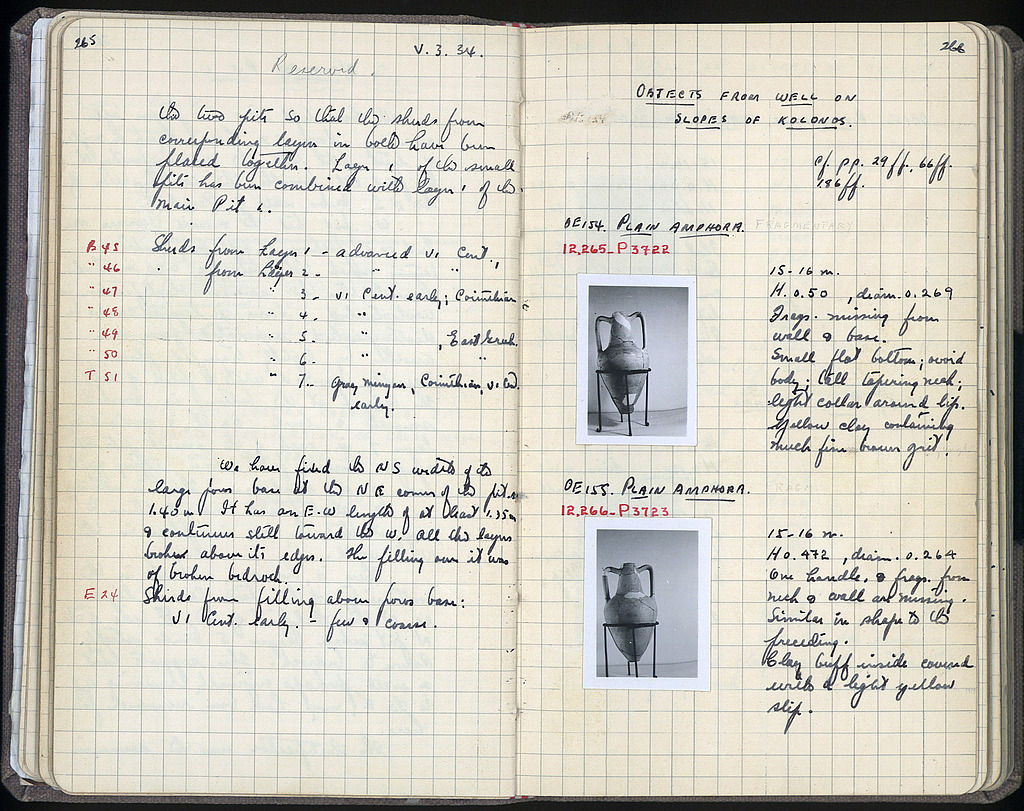 265
V. 3. 34.
Reserved.
the two pits so that the sherds from
corresponding layers in both have been
placed together. Layer 1 of the small
pits has been combined with layer 1 of the
Main Pit
B 45 Sherds from Layer 1 - advanced VI Cent.,
" 46 from Layer 2 - " "
" 47 " 3 - VI Cent. early; Corinthian
" 48 " 4 - "
" 49 " 5 - " , East Greek
" 50 " 6 - " "
T 51 " 7 - Gray minyan, Corinthian, VI Cent.
early.
We have fixed the NS width of the
large poros base at the NE corner of the pit
1.40 m It has an E-W length of at least 1.35m
& continues still toward the W. All the layers
broken above its edges. The filling over it was
of broken bedrock.
E 24 Sherds from filling above poros base:
VI Cent. early. - few & coarse.
266
OBJECTS FROM WELL ON
SLOPES OF KOLONOS.
cf. pp. 29 ff., 66ff.
186 ff.
OE 154. PLAIN AMPHORA. FRAGMENTARY
12,265-P3722
15-16 m.
H. 0.50 , diam. 0.269
Frags. missing from
wall & base.
Small flat bottom; ovoid
body; tall tapering neck;
light collar around lip.
Yellow clay containing
much fine brown grit.
OE 155. PLAIN AMPHORA.
12,266-P3723
15-16 m.
H 0.472 , diam. 0.264
One handle, & frags. from
neck & wall are missing.
Similar in shape to the
preceding.
Clay buff inside covered
with a light yellow
slip.